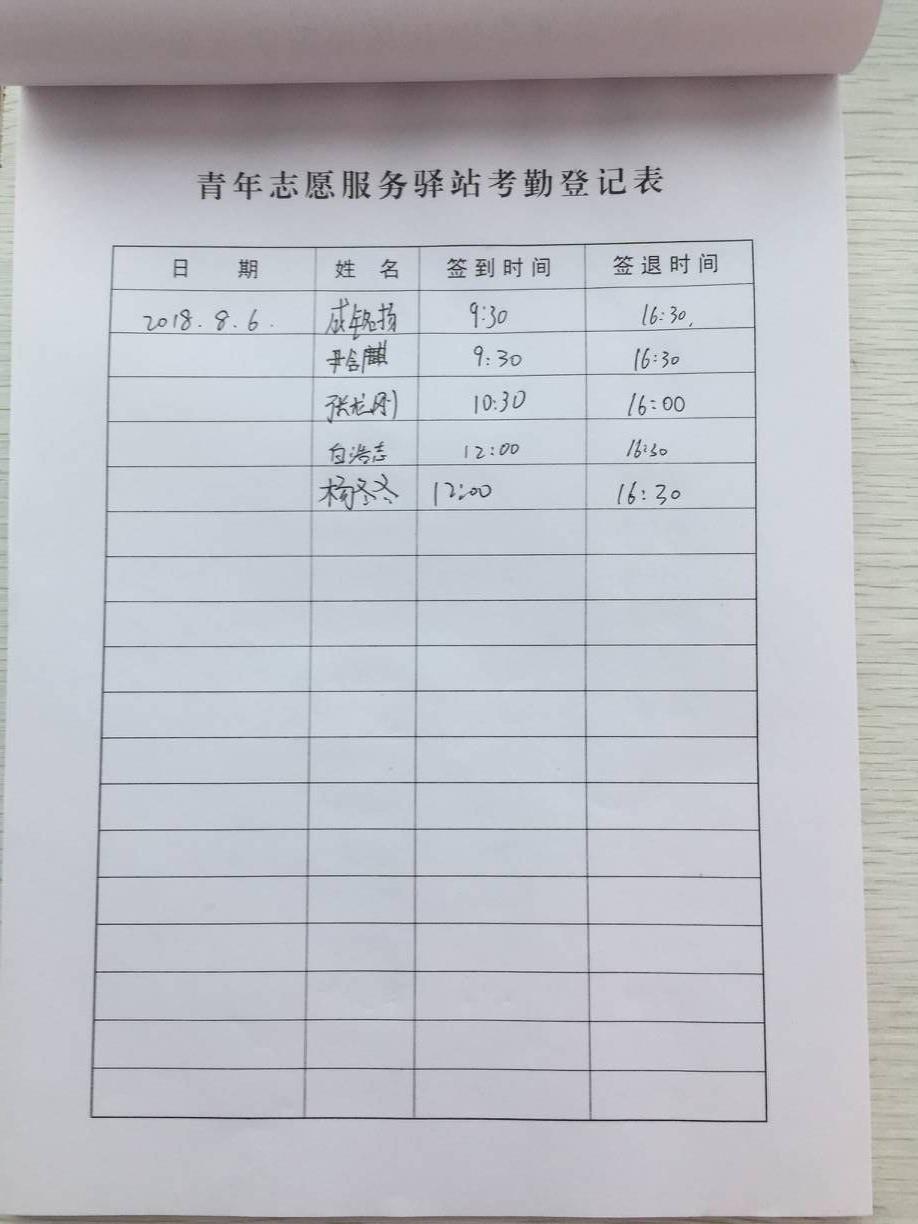 青年志愿服务驿站考勤登记表
日 期 姓 名 签到时间 签退时间
2018.8.6. 成铭扬 9:30 16:30.
9:30 16:30
张龙刚 10:30 16:00
白浩志 12:00 16:30
杨冬冬 12:00 16:30